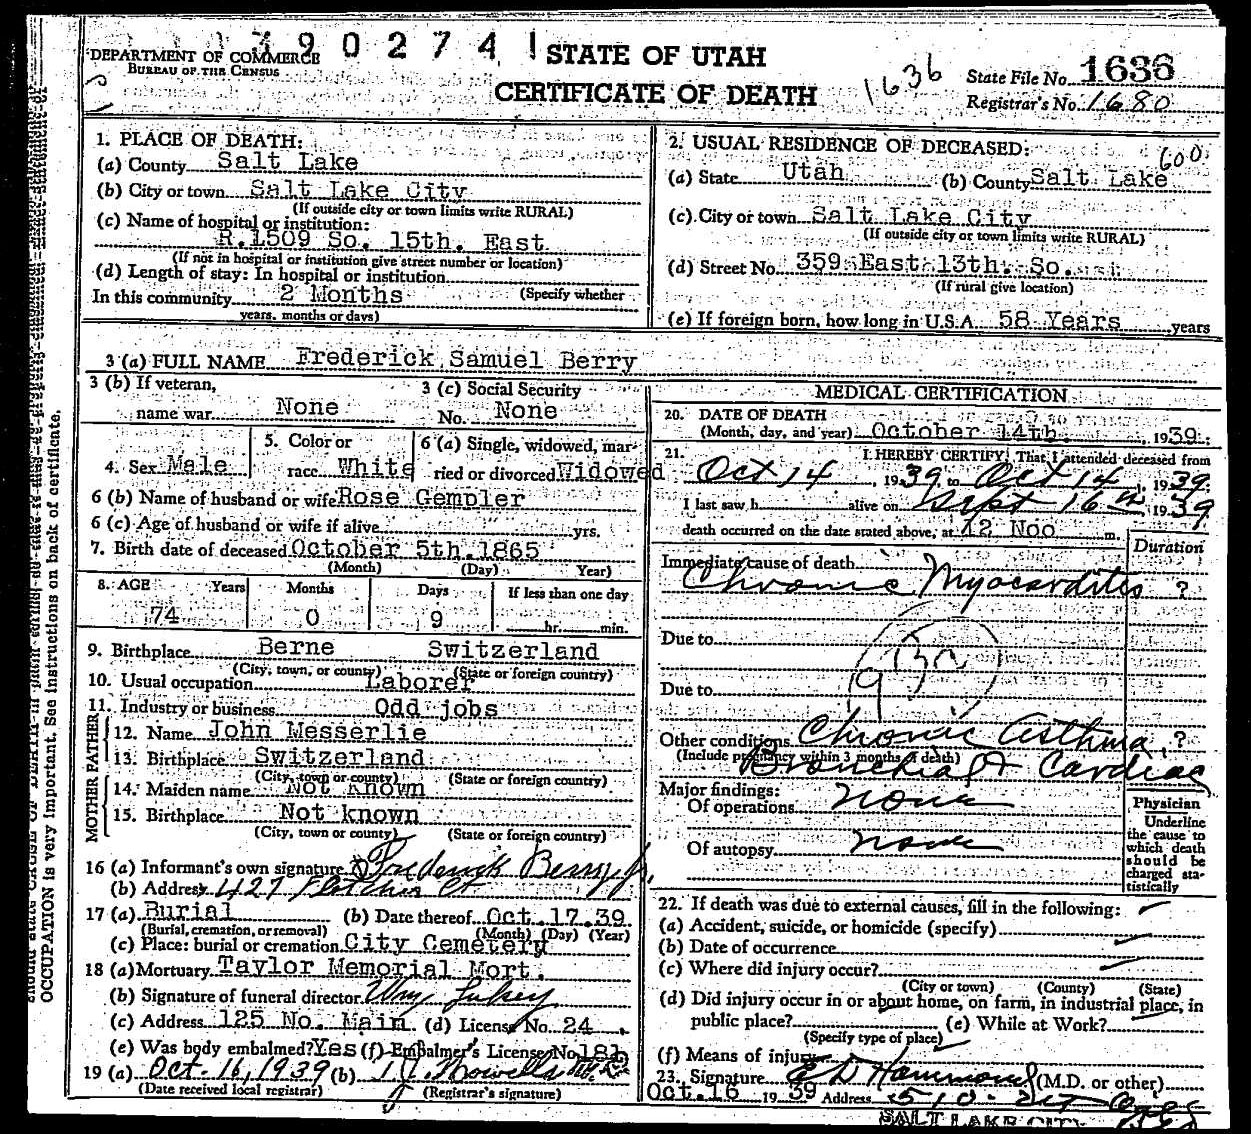 390274
DEPARTMENT OF COMMERCE
BUREAU OF THE CENSUS
STATE OF UTAH
CERTIFICATE OF DEATH
1636
State File No. 1636
Registrar's No. 1680
1. PLACE OF DEATH:
(a) County Salt Lake
(b) City or town Salt Lake City
(If outside city or town limits write RURAL)
(c) Name of hospital or institution:
R.1509 So. 15th. East
(If not in hospital or institution give street number or location)
(d) Length of stay: In hospital or institution
In this community 2 Months (Specify whether
years, months or days)
2. USUAL RESIDENCE OF DECEASED: 600
(a) State Utah (b) County Salt Lake
(c) City or town Salt Lake City
(If outside city or town limits write RURAL)
(d) Street No. 359 East 13th. So.
(If rural give location)
(e) If foreign born, how long in U.S.A. 58 Years years
3 (a) FULL NAME Frederick Samuel Berry
3 (b) If veteran,
name war None
3 (c) Social Security
No. None
4. Sex Male
5. Color or
race White
6 (a) Single, widowed, mar-
ried or divorced Widowed
6 (b) Name of husband or wife Rose Gempler
6 (c) Age of husband or wife if alive yrs.
7. Birth date of deceased October 5th. 1865
(Month) (Day) Year)
8. AGE Years Months Days If less than one day
74 0 9 hr. min.
9. Birthplace Berne Switzerland
(City, town, or county) (State or foreign country)
10. Usual occupation Laborer
11. Industry or business Odd jobs
FATHER
12. Name John Messerlie
13. Birthplace Switzerland
(City, town or county) (State or foreign country)
MOTHER
14. Maiden name Not Known
15. Birthplace Not known
(City, town or county) (State or foreign country)
16 (a) Informant's own signature Frederick Berry, Jr.
(b) Address 427 Fletcher Ct
17 (a) Burial (b) Date thereof Oct. 17. 39
(Burial, cremation, or removal) (Month) (Day) (Year)
(c) Place: burial or cremation City Cemetery
18 (a) Mortuary Taylor Memorial Mort.
(b) Signature of funeral director Wm
(c) Address 125 No. Main. (d) License No. 24
(e) Was body embalmed? Yes (f) Embalmer's License No 181
19 (a) Oct. 16, 1939 (b)
(Date received local registrar) (Registrar's signature)
MEDICAL CERTIFICATION
20. DATE OF DEATH
(Month, day, and year) October 14th. , 1939 ;
21. I HEREBY CERTIFY, That I attended deceased from
Oct 14 , 1939, to Oct 14 , 1939.
I last saw h alive on Sept 16th , 1939
death occurred on the date stated above, at 12 Noo m.
Duration
Immediate cause of death
Chronic Myocardites ?
Due to
93c
Due to
Other conditions Chronic Asthma, ?
(Include pregnancy within 3 months of death)
Bronchial & Cardiac
Major findings:
Of operations none
Of autopsy none
Physician
Underline
the cause to
which death
should be
charged sta-
tistically
22. If death was due to external causes, fill in the following:
(a) Accident, suicide, or homicide (specify)
(b) Date of occurrence
(c) Where did injury occur?
(City or town) (County) (State)
(d) Did injury occur in or about home, on farm, in industrial place, in
public place? (e) While at Work?
(Specify type of place)
(f) Means of injury
23. Signature E D Hammond (M.D. or other)
Oct. 16 1939 Address 510
SALT LAKE CITY
OCCUPATION is very important. See instructions on back of certificate.